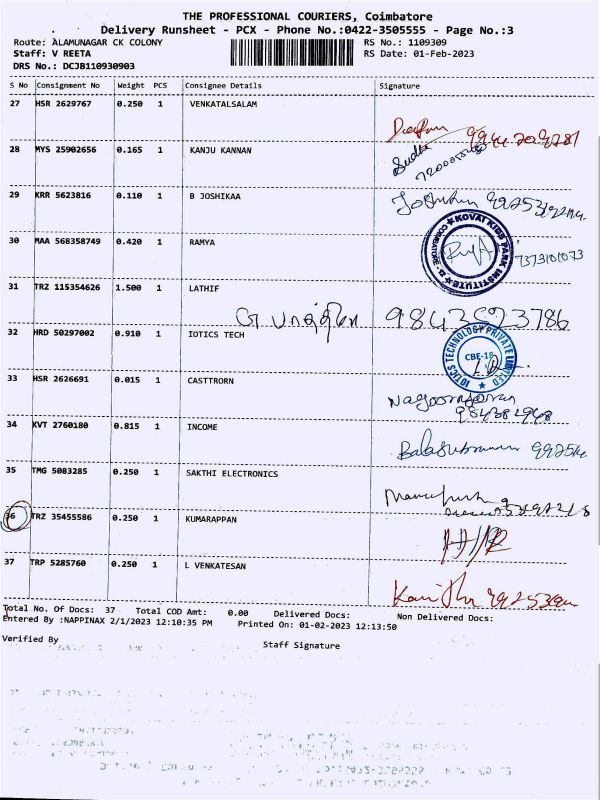 THE PROFESSIONAL COURIERS, Coimbatore
Delivery Runsheet - PCX - Phone No.:0422-3505555 - Page No.:3
Route: ALAMUNAGAR CK COLONY RS No.: 1109309
Staff: V REETA RS Date: 01-Feb-2023
DRS No.: DCJB110930903
S No Consignment No Weight PCS Consignee Details Signature
27 HSR 2629767 0.250 1 VENKATALSALAM
28 MYS 25902656 0.165 1 KANJU KANNAN
Sudha
29 KRR 5623816 0.110 1 B JOSHIKAA
30 MAA 568358749 0.420 1 RAMYA
KOVAI KIDS PARK INSTITUTE
COIMBATORE
7373101073
31 TRZ 115354626 1.500 1 LATHIF
9842523786
32 HRD 50297002 0.910 1 IOTICS TECH
IOTICS TECHNOLOGY PRIVATE LIMITED
CBE-18
33 HSR 2626691 0.015 1 CASTTRORN
34 KVT 2760180 0.815 1 INCOME
35 TMG 5083285 0.250 1 SAKTHI ELECTRONICS
36 TRZ 35455586 0.250 1 KUMARAPPAN
37 TRP 5285760 0.250 1 L VENKATESAN
Total No. Of Docs: 37 Total COD Amt: 0.00 Delivered Docs: Non Delivered Docs:
Entered By :NAPPINAX 2/1/2023 12:10:35 PM Printed On: 01-02-2023 12:13:50
Verified By Staff Signature